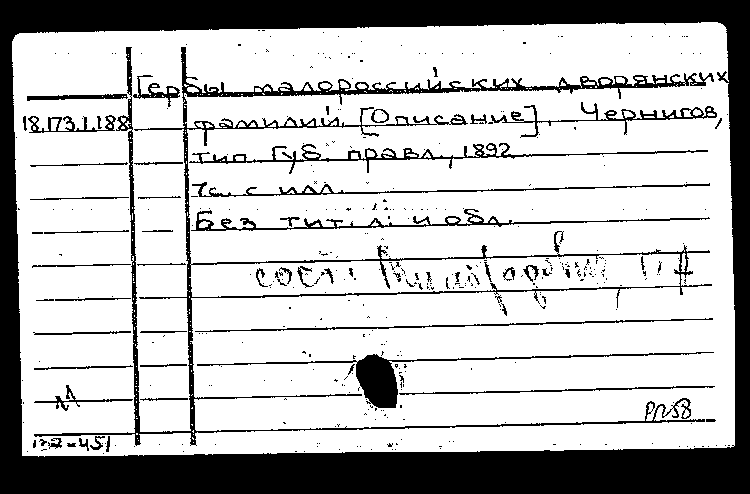 Гербы малороссийских дворянских
18.173.1.188 фамилий. [Описание]. Чернигов,
тип. Губ. правл., 1892
7с. с илл.
Без тит. л. и обл.
сост. Милорадович, Г. А
М
РП58